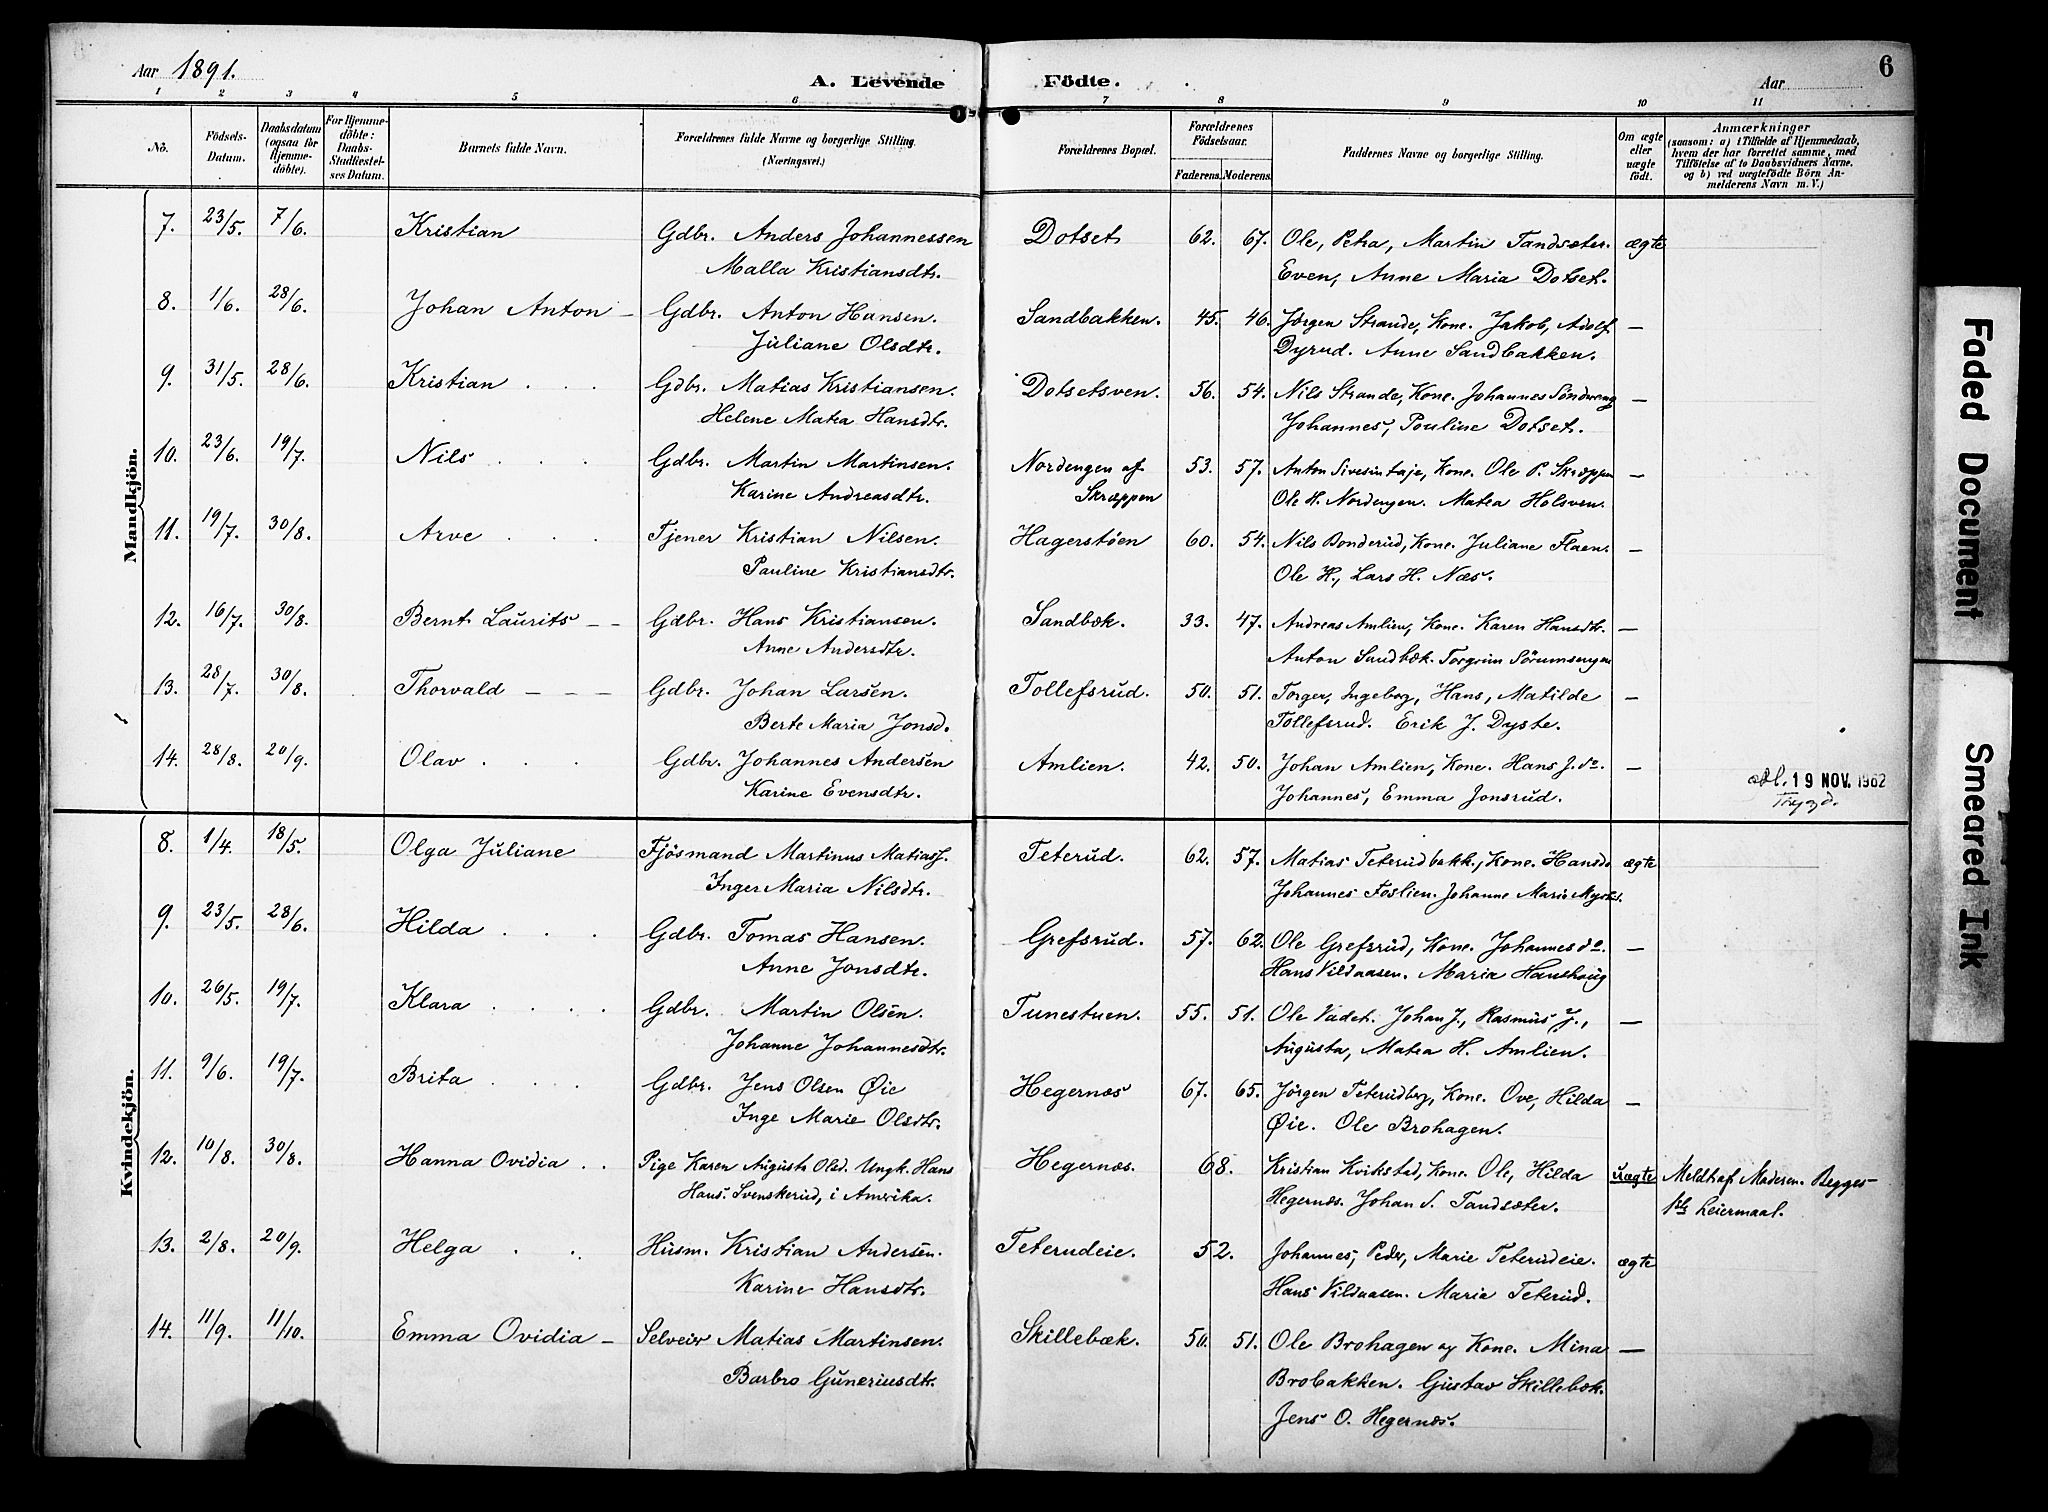 Aar 1891. A. Levende Födte. Aar 6
1 2 3 4 5 6 7 8 9 10 11
No. Födsels-Datum. Daabsdatum (ogsaa for Hjemme-döbte). For Hjemme-döbte: Daabs-Stadfæstel-ses Datum. Barnets fulde Navn. Forældrenes fulde Navne og borgerlige Stilling. (Næringsvei.) Forældrenes Bopæl. Forældrenes Födselsaar. Faderens. Moderens. Faddernes Navne og borgerlige Stilling. Om ægte eller uægte födt. Anmærkninger (saasom: a) i Tilfælde af Hjemmedaab, hvem der har forrettet samme, med Tilföielse af to Daabsvidners Navne, og b) ved uægtefödte Börn An-melderens Navn m. V.)
Mandkjön.
7. 23/5. 7/6. Kristian Gdbr. Anders Johannessen Dotset 62. 67. Ole, Petra, Martin Tandsæter. ægte
Malla Kristiansdtr. Even, Anne Maria Dotset.
8. 1/6. 28/6. Johan Anton – Gdbr. Anton Hansen. Sandbakken. 45. 46. Jörgen Strande, Kone. Jakob, Adolf –
Juliane Olsdtr. Dyrud. Anne Sandbakken.
9. 31/5. 28/6. Kristian . . . Gdbr. Matias Kristiansen. Dotsetsven. 56. 54. Nils Strande, Kone. Johannes Söndreng –
Helene Matea Hansdtr. Johannes, Pouline Dotset.
10. 23/6. 19/7. Nils . . . Gdbr. Martin Martinsen. Nordengen af 53. 57. Anton Sivesintaje, Kone. Ole P. Skræppen –
Karine Andreasdtr. Skræppen Ole H. Nordengen. Matea Holsven.
11. 19/7. 30/8. Arve . . . Tjener Kristian Nilsen. Hagerstöen 60. 54. Nils Bonderud, Kone. Juliane Flaen. –
Pauline Kristiansdtr. Ole H., Lars H. Næs.
12. 16/7. 30/8. Bernt Laurits – – Gdbr. Hans Kristiansen. Sandbæk. 33. 47. Andreas Amlien, Kone. Karen Hansdtr. –
Anne Andersdtr. Anton Sandbæk. Torgrim Sörumsengen
13. 28/7. 30/8. Thorvald – – – Gdbr. Johan Larsen. Tollefsrud. 50. 51. Torger, Ingeborg, Hans, Matilde –
Berte Maria Jonsd. Tollefsrud. Erik J. Dyste.
14. 28/8. 20/9. Olav . . . Gdbr. Johannes Andersen Amlien. 42. 50. Johan Amlien, Kone. Hans J. do. – 19 NOV. 1962
Karine Evensdtr. Johannes, Emma Jonsrud.
Kvindekjön.
8. 1/4. 18/5. Olga Juliane Fjösmand Martinus Matiasf. Teterud. 62. 57. Matias Teterudbakk., Kone. Hans do ægte
Inger Maria Nilsdtr. Johannes Foslien. Johanne Marie
9. 23/5. 28/6. Hilda . . . Gdbr. Tomas Hansen. Grefsrud. 57. 62. Ole Grefsrud, Kone. Johannes do. –
Anne Jonsdtr. Hans Vildaasen. Maria Hanshaug
10. 26/5. 19/7. Klara . . . . Gdbr. Martin Olsen. Tunestuen. 55. 51. Ole Vadet. Johan J., Rasmus J., –
Johanne Johannesdtr. Augusta, Matea H. Amlien.
11. 9/6. 19/7. Brita . . . . Gdbr. Jens Olsen Øie Hegernæs 67. 65. Jörgen Teterudberg, Kone. Ove, Hilda –
Inge Marie Olsdtr. Øie. Ole Brohagen.
12. 10/8. 30/8. Hanna Ovidia . . Pige Karen August. Olsd. Ungk. Hans Hegernæs. 68. Kristian Kvikstad, Kone. Ole, Hilda uægte Meldt af Moderen. Begges
Hans. Svenskerud, i Amerika. Hegernæs. Johan S. Tandsæter. 1ste Leiermaal.
13. 2/8. 20/9. Helga . . Husm. Kristian Andersen. Teterudeie. 52. Johannes, Peder, Marie Teterudeie. ægte
Karine Hansdtr. Hans Vildaasen. Maria Teterud.
14. 11/9. 11/10. Emma Ovidia – Selveier Matias Martinsen. Skillebæk. 50. 51. Ole Brohagen og Kone. Mina –
Barbro Guneriusdtr. Brobakken. Gustav Skillebæk.
Jens O. Hegernæs.
Faded Document
Smeared Ink